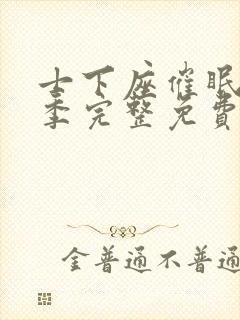 士下座催眠
季完整免費
金普通不普通